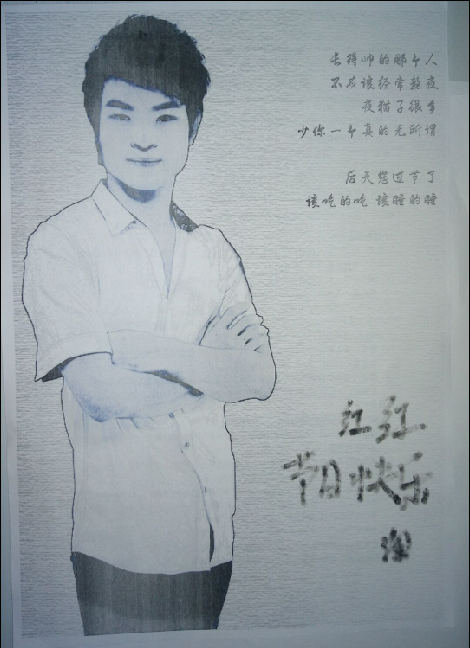 长得帅的那个人
不应该经常熬夜
夜猫子很多
少你一个真的无所谓
后天您过节了
该吃的吃 该睡的睡
红红
节日快乐